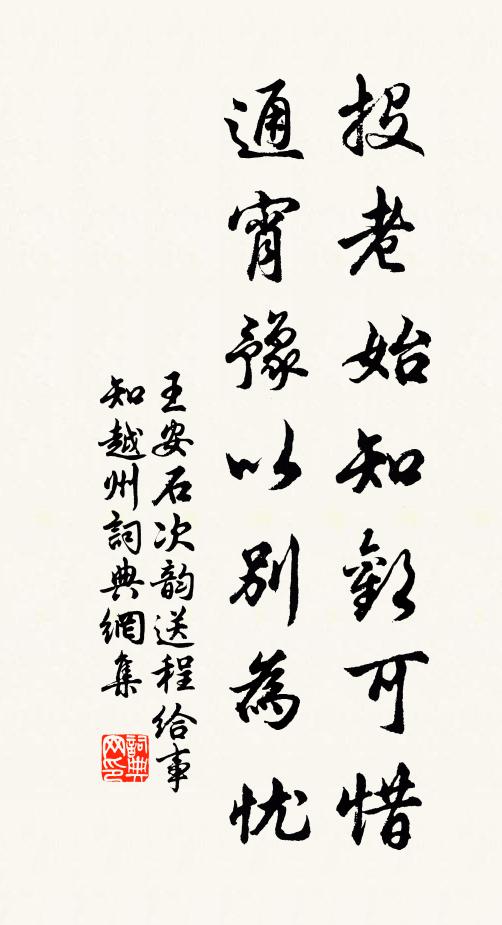 投老始知歡可惜
通宵豫以別為忧
王安石次韵送程给事
知越州詞典網集
詞典
网印